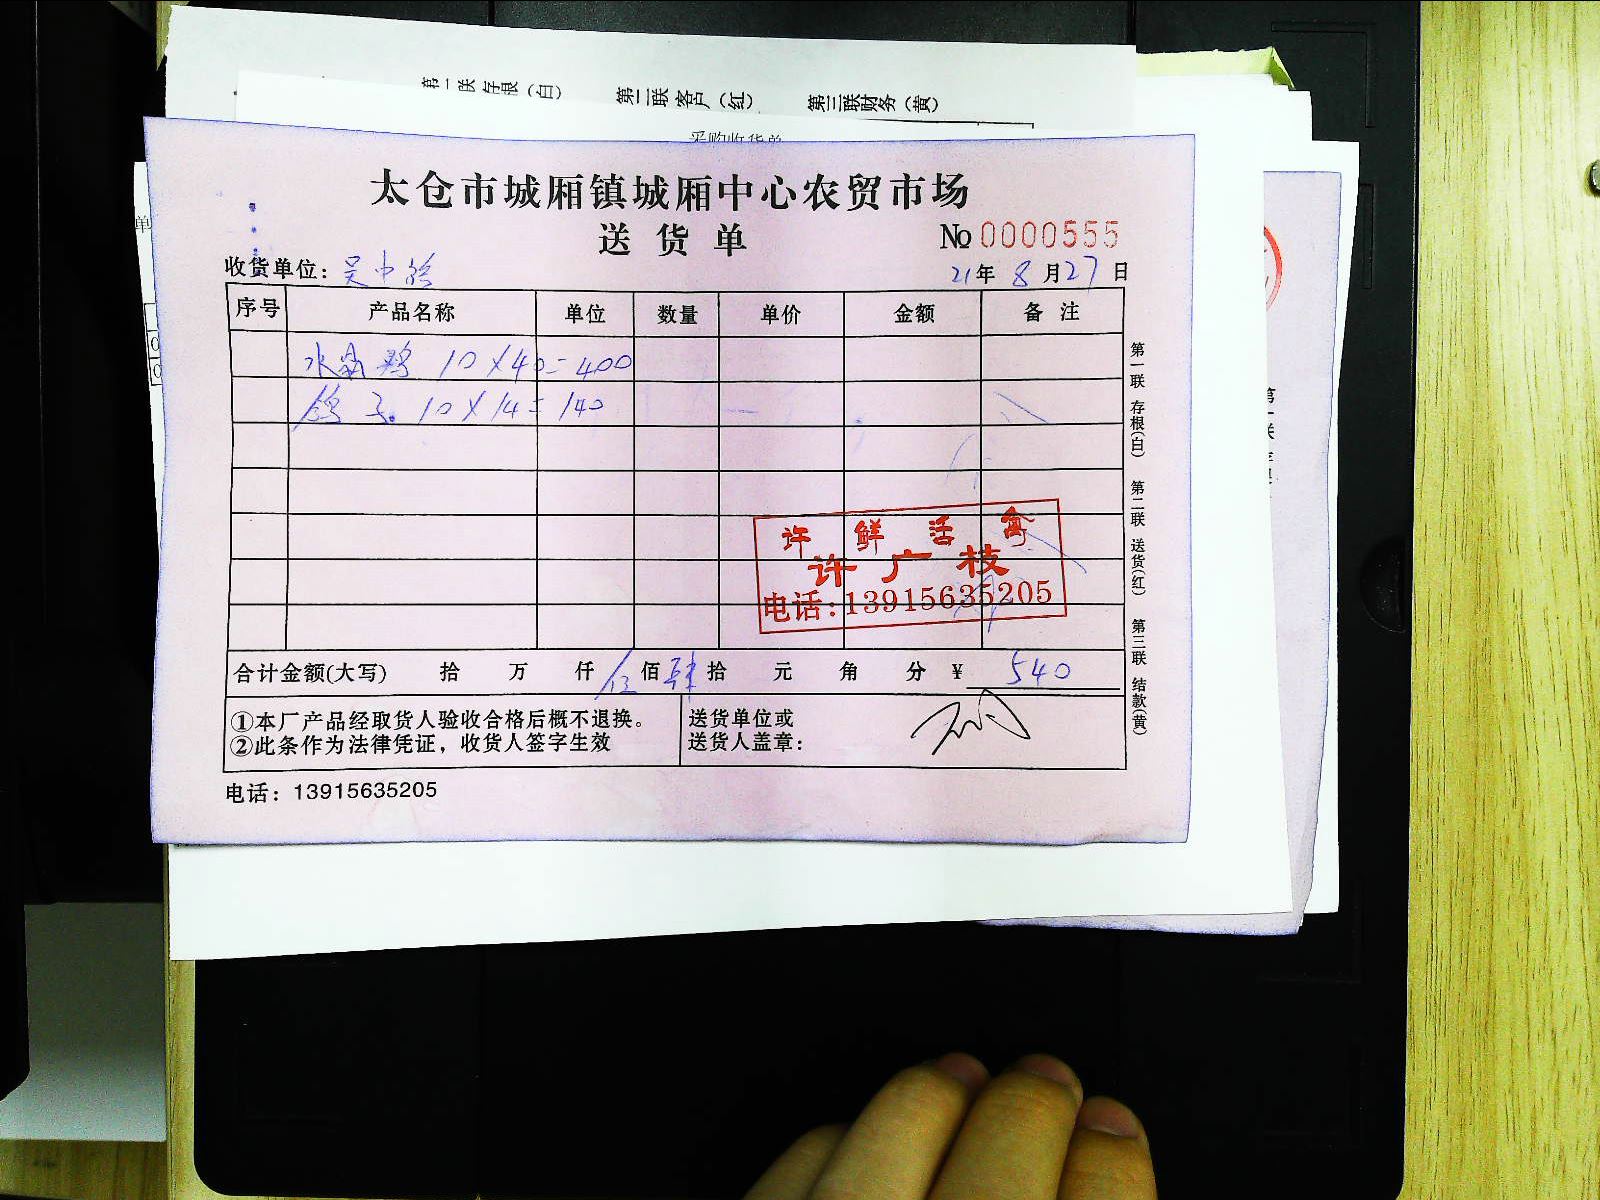 第一联存根（白） 第二联客户（红） 第三联财务（黄）
采购收货单
太仓市城厢镇城厢中心农贸市场
送货单
№0000555
收货单位：吴中
21年8月27日
序号 产品名称 单位 数量 单价 金额 备注
水晶鸡 10×40=400
鸽子 10×14=140
许鲜活禽
许广枝
电话:13915635205
合计金额(大写) 拾 万 仟 伍佰 肆拾 元 角 分 ¥ 540
①本厂产品经取货人验收合格后概不退换。
②此条作为法律凭证，收货人签字生效
送货单位或
送货人盖章：
电话：13915635205
第一联 存根(白) 第二联 送货(红) 第三联 结款(黄)
单